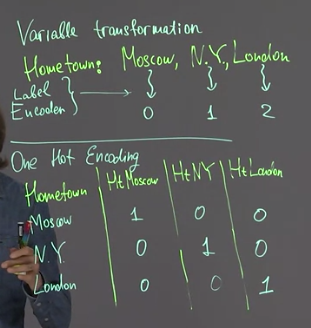 Variable transformation
Hometown: Moscow, N.Y., London
Label
Encoder 0 1 2
One Hot Encoding
Hometown Ht Moscow Ht NY Ht London
Moscow 1 0 0
N.Y. 0 1 0
London 0 0 1